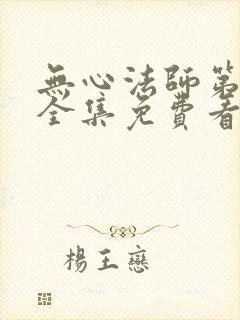 無心法師第
全集免費看
楊王戀